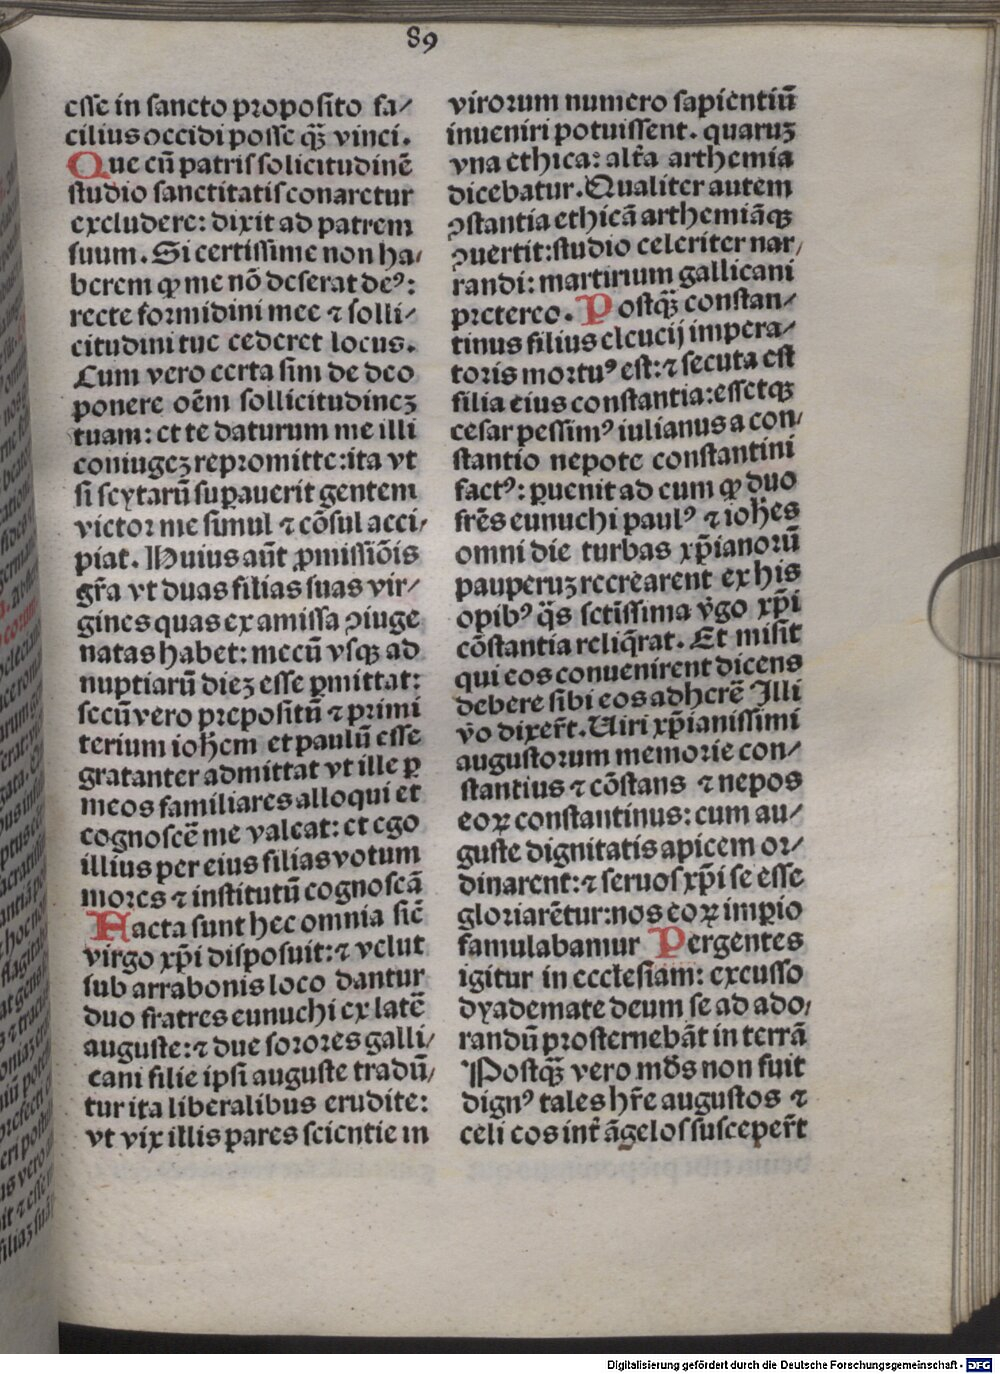 89
esse in sancto proposito fa⸗
cilius occidi posse qꝫ̄ vinci.
Que cū patris solicitudinē
studio sanctitatis conaretur
excludere: dixit ad patrem
suum. Si certissime non ha⸗
berem ꝙ me nō deserat deꝰ:
recte formidini mee ⁊ solli⸗
citudini tue cederet locus.
Cum vero certa sim de deo
ponere oēm sollicitudineꝫ
tuam: et te daturum me illi
coniugeꝫ repromitte: ita vt
si scytarū suꝑauerit gentem
victor me simul ⁊ cōsul acci⸗
piat. Huius aūt ꝓmissiōis
gr̄a vt duas filias suas vir⸗
gines quas ex amissa ꝯiuge
natas habet: mecū vsqꝫ ad
nuptiarū dieꝫ esse ꝑmittat:
secū vero prepositū ⁊ primi
terium ioh̄em et paulū esse
gratanter admittat vt ille ꝑ
meos familiares alloqui et
cognoscē me valeat: et ego
illius per eius filias votum
mores ⁊ institutū cognoscā
Facta sunt hec omnia sic̄
virgo xp̄i disposuit: ⁊ velut
sub arrabonis loco dantur
duo fratres eunuchi ex latē
auguste: ⁊ due sorores galli⸗
cani filie ipsi auguste tradū⸗
tur ita liberalibus erudite:
vt vix illis pares scientie in
virorum numero sapientiū
inueniri potuissent. quaruꝫ
vna ethica: alt̄a arthemia
dicebatur. Qualiter autem
ꝯstantia ethicā arthemiāqꝫ
ꝯuertit: studio celeriter nar⸗
randi: martirium gallicani
pretereo. Postqꝫ̄ constan⸗
tinus filius eleucij impera⸗
toris mortuꝰ est: ⁊ secuta est
filia eius constantia: essetqꝫ
cesar pessimꝰ iulianus a con⸗
stantio nepote constantini
factꝰ: ꝑuenit ad eum ꝙ duo
fr̄es eunuchi paulꝰ ⁊ ioh̄es
omni die turbas xp̄ianorū
pauperuꝫ recrearent ex his
opibꝰ q̄s sctīssima v̄go xp̄i
cōstantia reliq̄rat. Et misit
qui eos conuenirent dicens
debere sibi eos adherē Illi
v̄o dixer̄t. Uiri xp̄ianissimi
augustorum memorie con⸗
stantius ⁊ cōstans ⁊ nepos
eoꝝ constantinus: cum au⸗
guste dignitatis apicem or⸗
dinarent: ⁊ seruos xp̄i se esse
gloriarētur: nos eoꝝ imꝑio
famulabamur Pergentes
igitur in ecclesiam: excusso
dyademate deum se ad ado⸗
randū prosternebāt in terrā
Postqꝫ̄ vero mūds non fuit
dignꝰ tales hr̄e augustos ⁊
celi eos int̄ āgelos susceper̄t
Digitalisierung gefördert durch die Deutsche Forschungsgemeinschaft - DFG